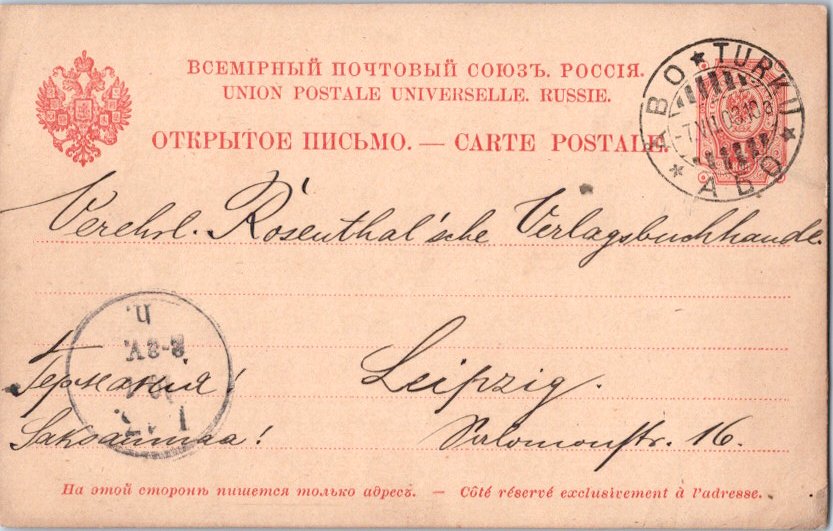 ВСЕМІРНЫЙ ПОЧТОВЫЙ СОЮЗЪ. РОССІЯ.
UNION POSTALE UNIVERSELLE. RUSSIE.
ОТКРЫТОЕ ПИСЬМО. — CARTE POSTALE.
ÅBO ★ TURKU ★ АБО ★
Verehrl. Rosenthal'sche Verlagsbuchhande.
Германия!
Leipzig.
Saksanmaa!
Salomonstr. 16.
На этой сторонѣ пишется только адресъ. — Côté réservé exclusivement à l'adresse.